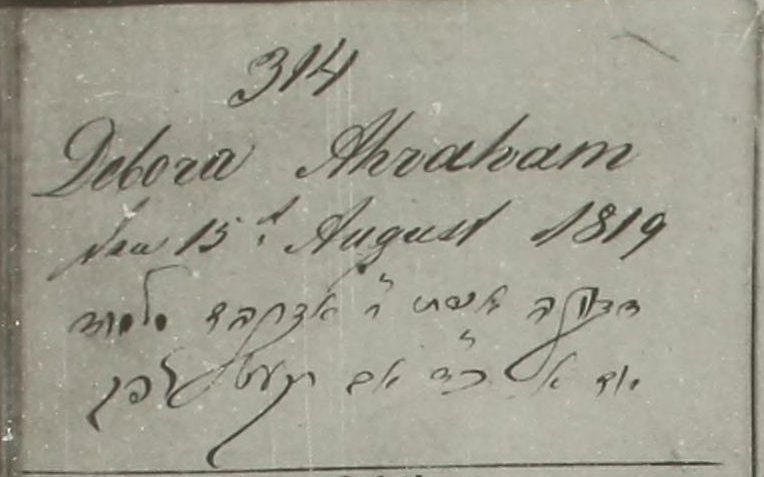 314
Debora Abraham
den 15t August 1819
אשת ר' אברהם
יום א כ"ד אב תקעט לפק